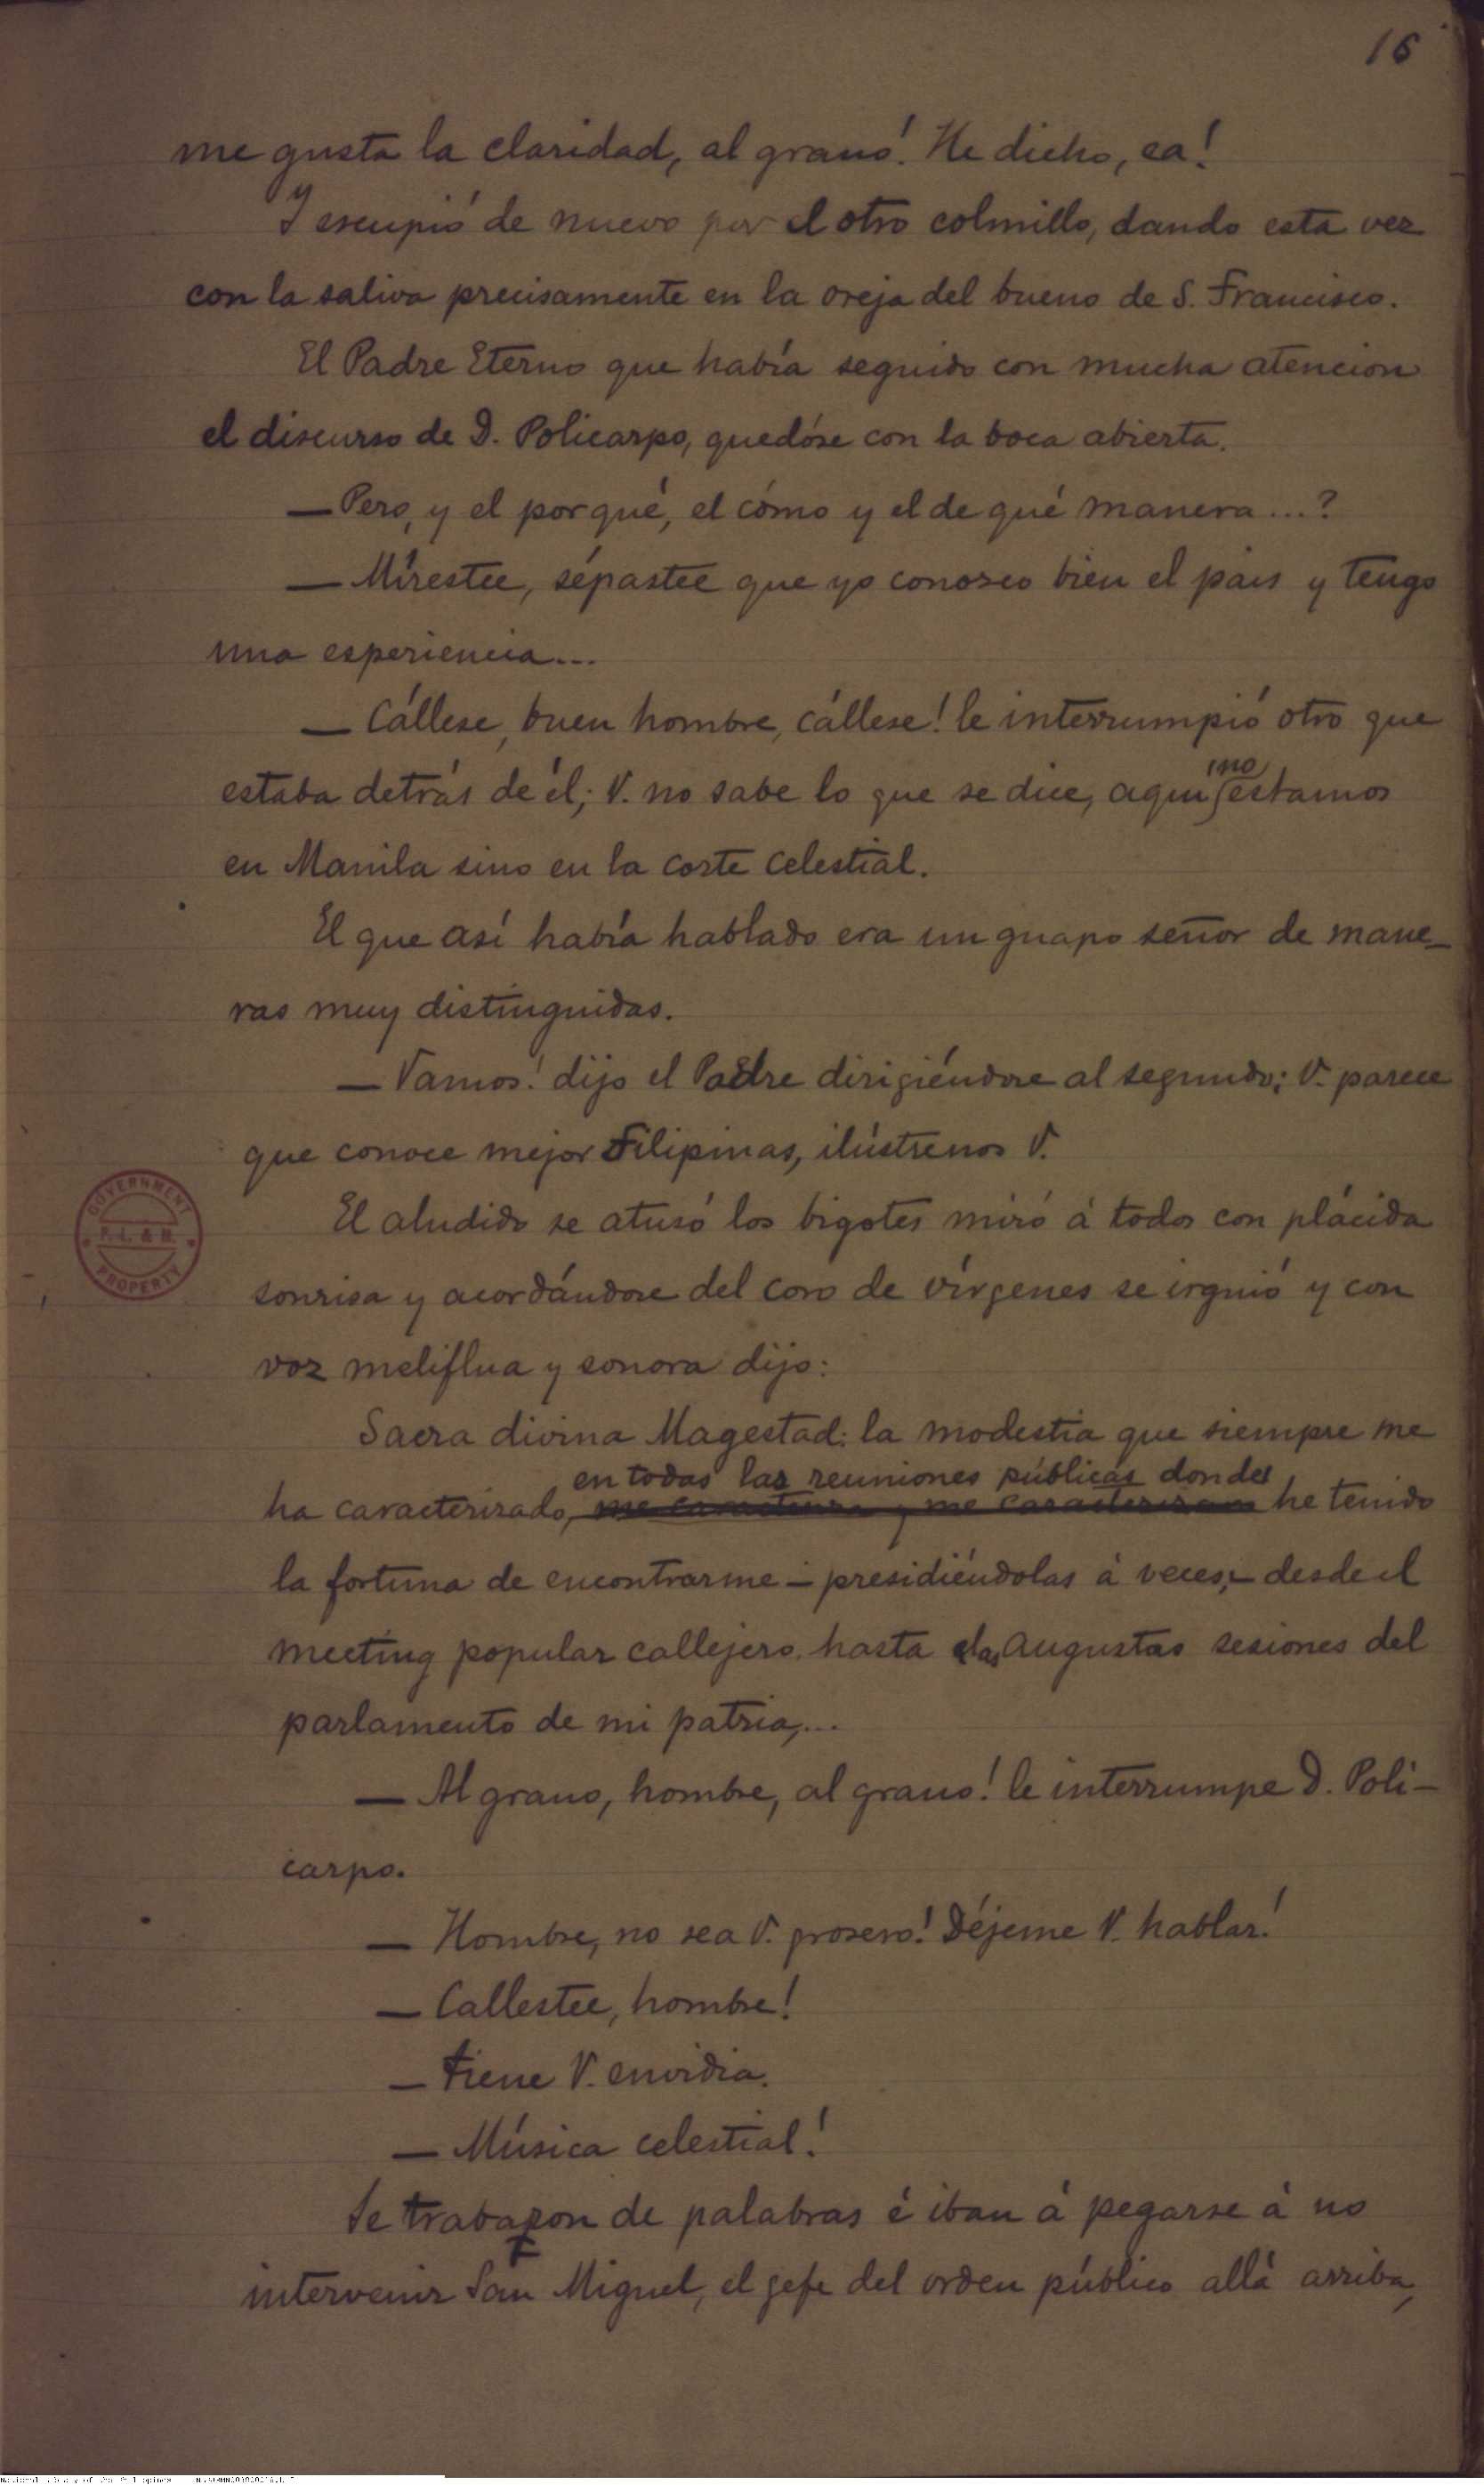 16
me gusta la claridad, al grano! He dicho, ea!
Y escupió de nuevo por el otro colmillo, dando esta vez
con la saliva precisamente en la oreja del bueno de S. Francisco.
El Padre Eterno que había seguido con mucha atencion
el discurso de D. Policarpo, quedóse con la boca abierta.
— Pero, y el por qué, el cómo y el de qué manera ...?
— Mírestee, sépastee que yo conozco bien el pais y tengo
una esperiencia...
— Cállese, buen hombre, cállese! le interrumpió otro que
estaba detrás de él; V. no sabe lo que se dice, aqui no estamos
en Manila sino en la corte celestial.
El que así había hablado era un guapo señor de mane-
ras muy distinguidas.
— Vamos! dijo el Padre dirigiéndose al segundo; V. parece
que conoce mejor Filipinas, ilústrenos V.
El aludido se atusó los bigotes miró á todos con plácida
sonrisa y acordándose del coro de vírgenes se irguió y con
voz meliflua y sonora dijo:
Sacra divina Magestad: la modestia que siempre me
en todas las reuniones públicas donde
ha caracterizado, me caracteriza y me caracterizara he tenido
la fortuna de encontrarme — presidiéndolas á veces, — desde el
meeting popular callejero hasta las augustas sesiones del
parlamento de mi patria,...
— Al grano, hombre, al grano! le interrumpe D. Poli-
carpo.
— Hombre, no sea V. grosero! Déjeme V. hablar!
— Callestee, hombre!
— Tiene V. envidia.
— Música celestial!
Se trabaron de palabras é iban á pegarse á no
intervenir San Miguel, el gefe del orden público allá arriba,
GOVERNMENT
P. L. & M.
PROPERTY
National Library of the Philippines